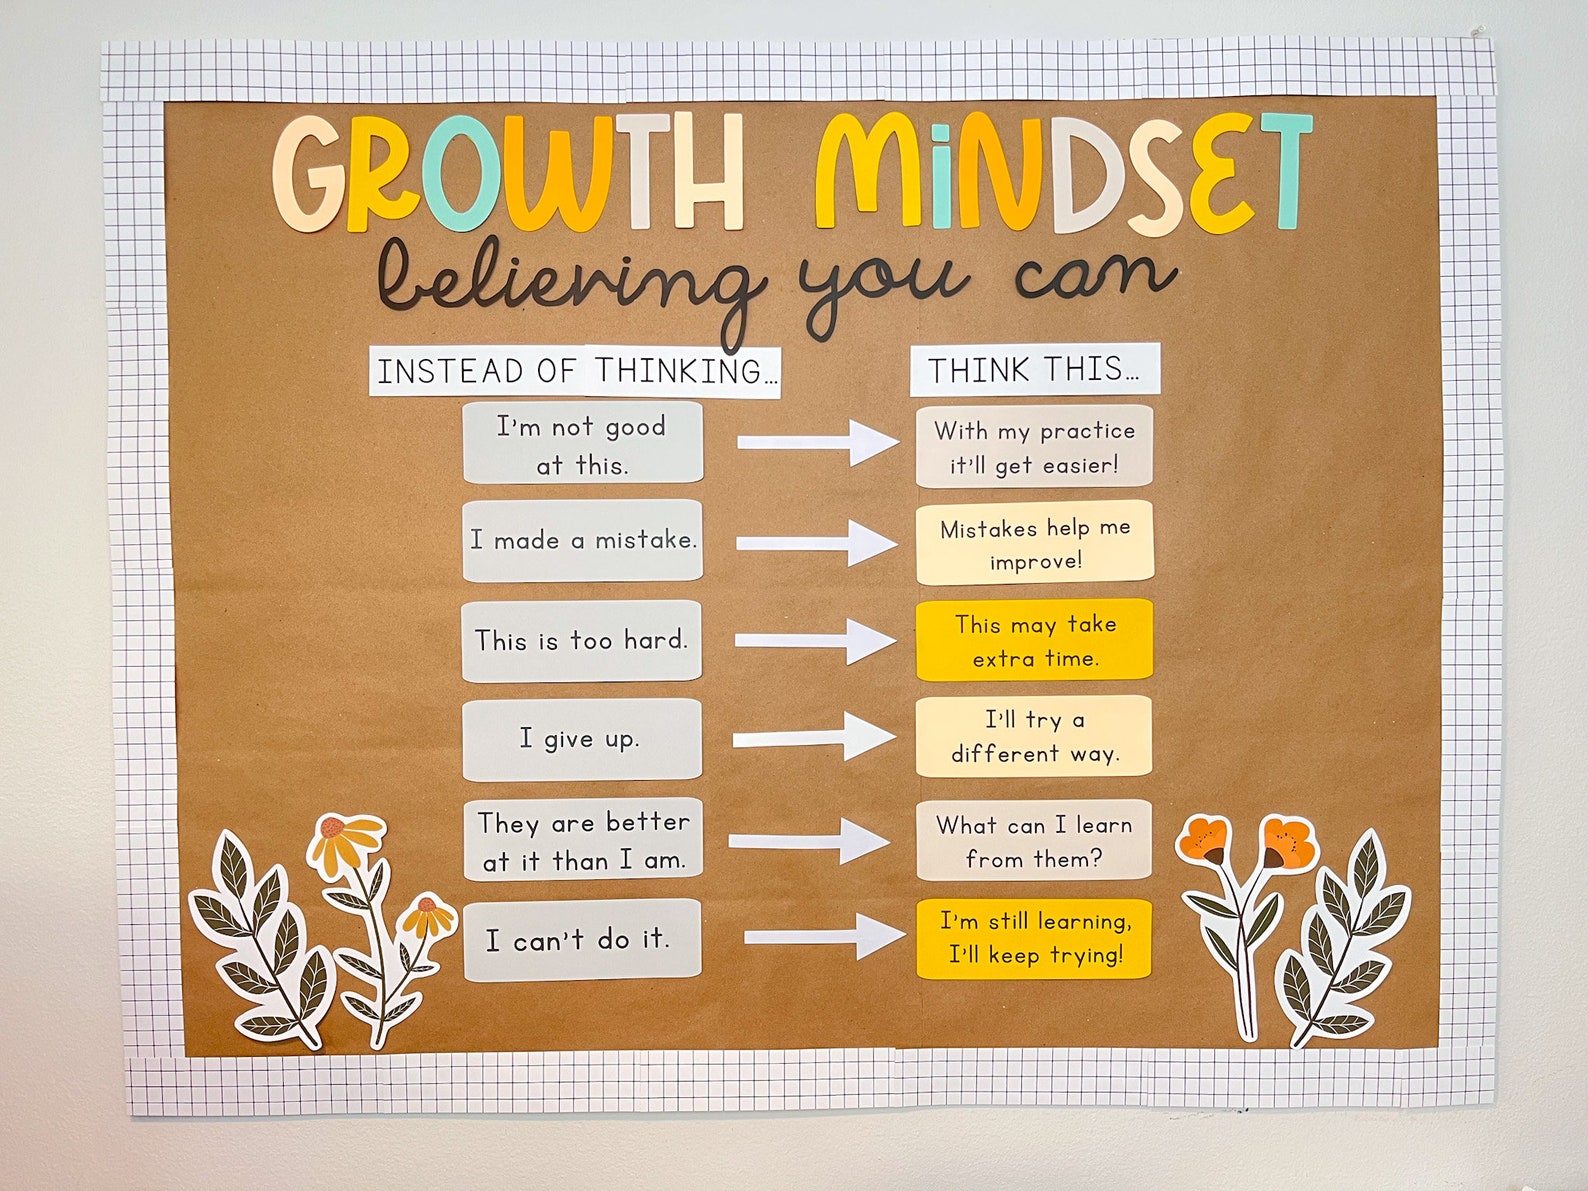 GROWTH MiNDSET
believing you can
INSTEAD OF THINKING...
THINK THIS...
I'm not good
at this.
With my practice
it'll get easier!
I made a mistake.
Mistakes help me
improve!
This is too hard.
This may take
extra time.
I give up.
I'll try a
different way.
They are better
at it than I am.
What can I learn
from them?
I can't do it.
I'm still learning,
I'll keep trying!